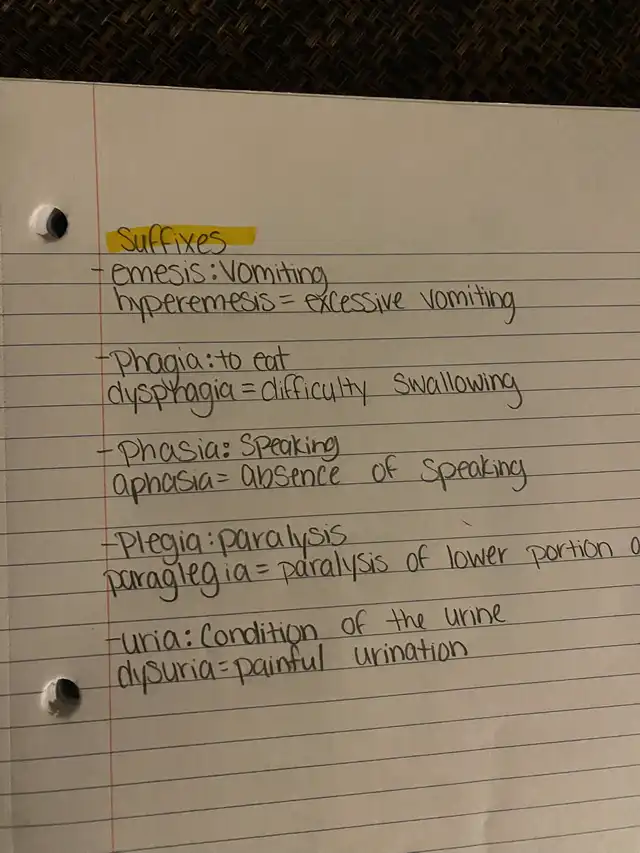 Suffixes
-emesis: Vomiting
hyperemesis = excessive vomiting
-Phagia: to eat
dysphagia = difficulty swallowing
-Phasia: Speaking
aphasia = absence of speaking
-Plegia: paralysis
paraglegia = paralysis of lower portion
-uria: Condition of the urine
dysuria = painful urination